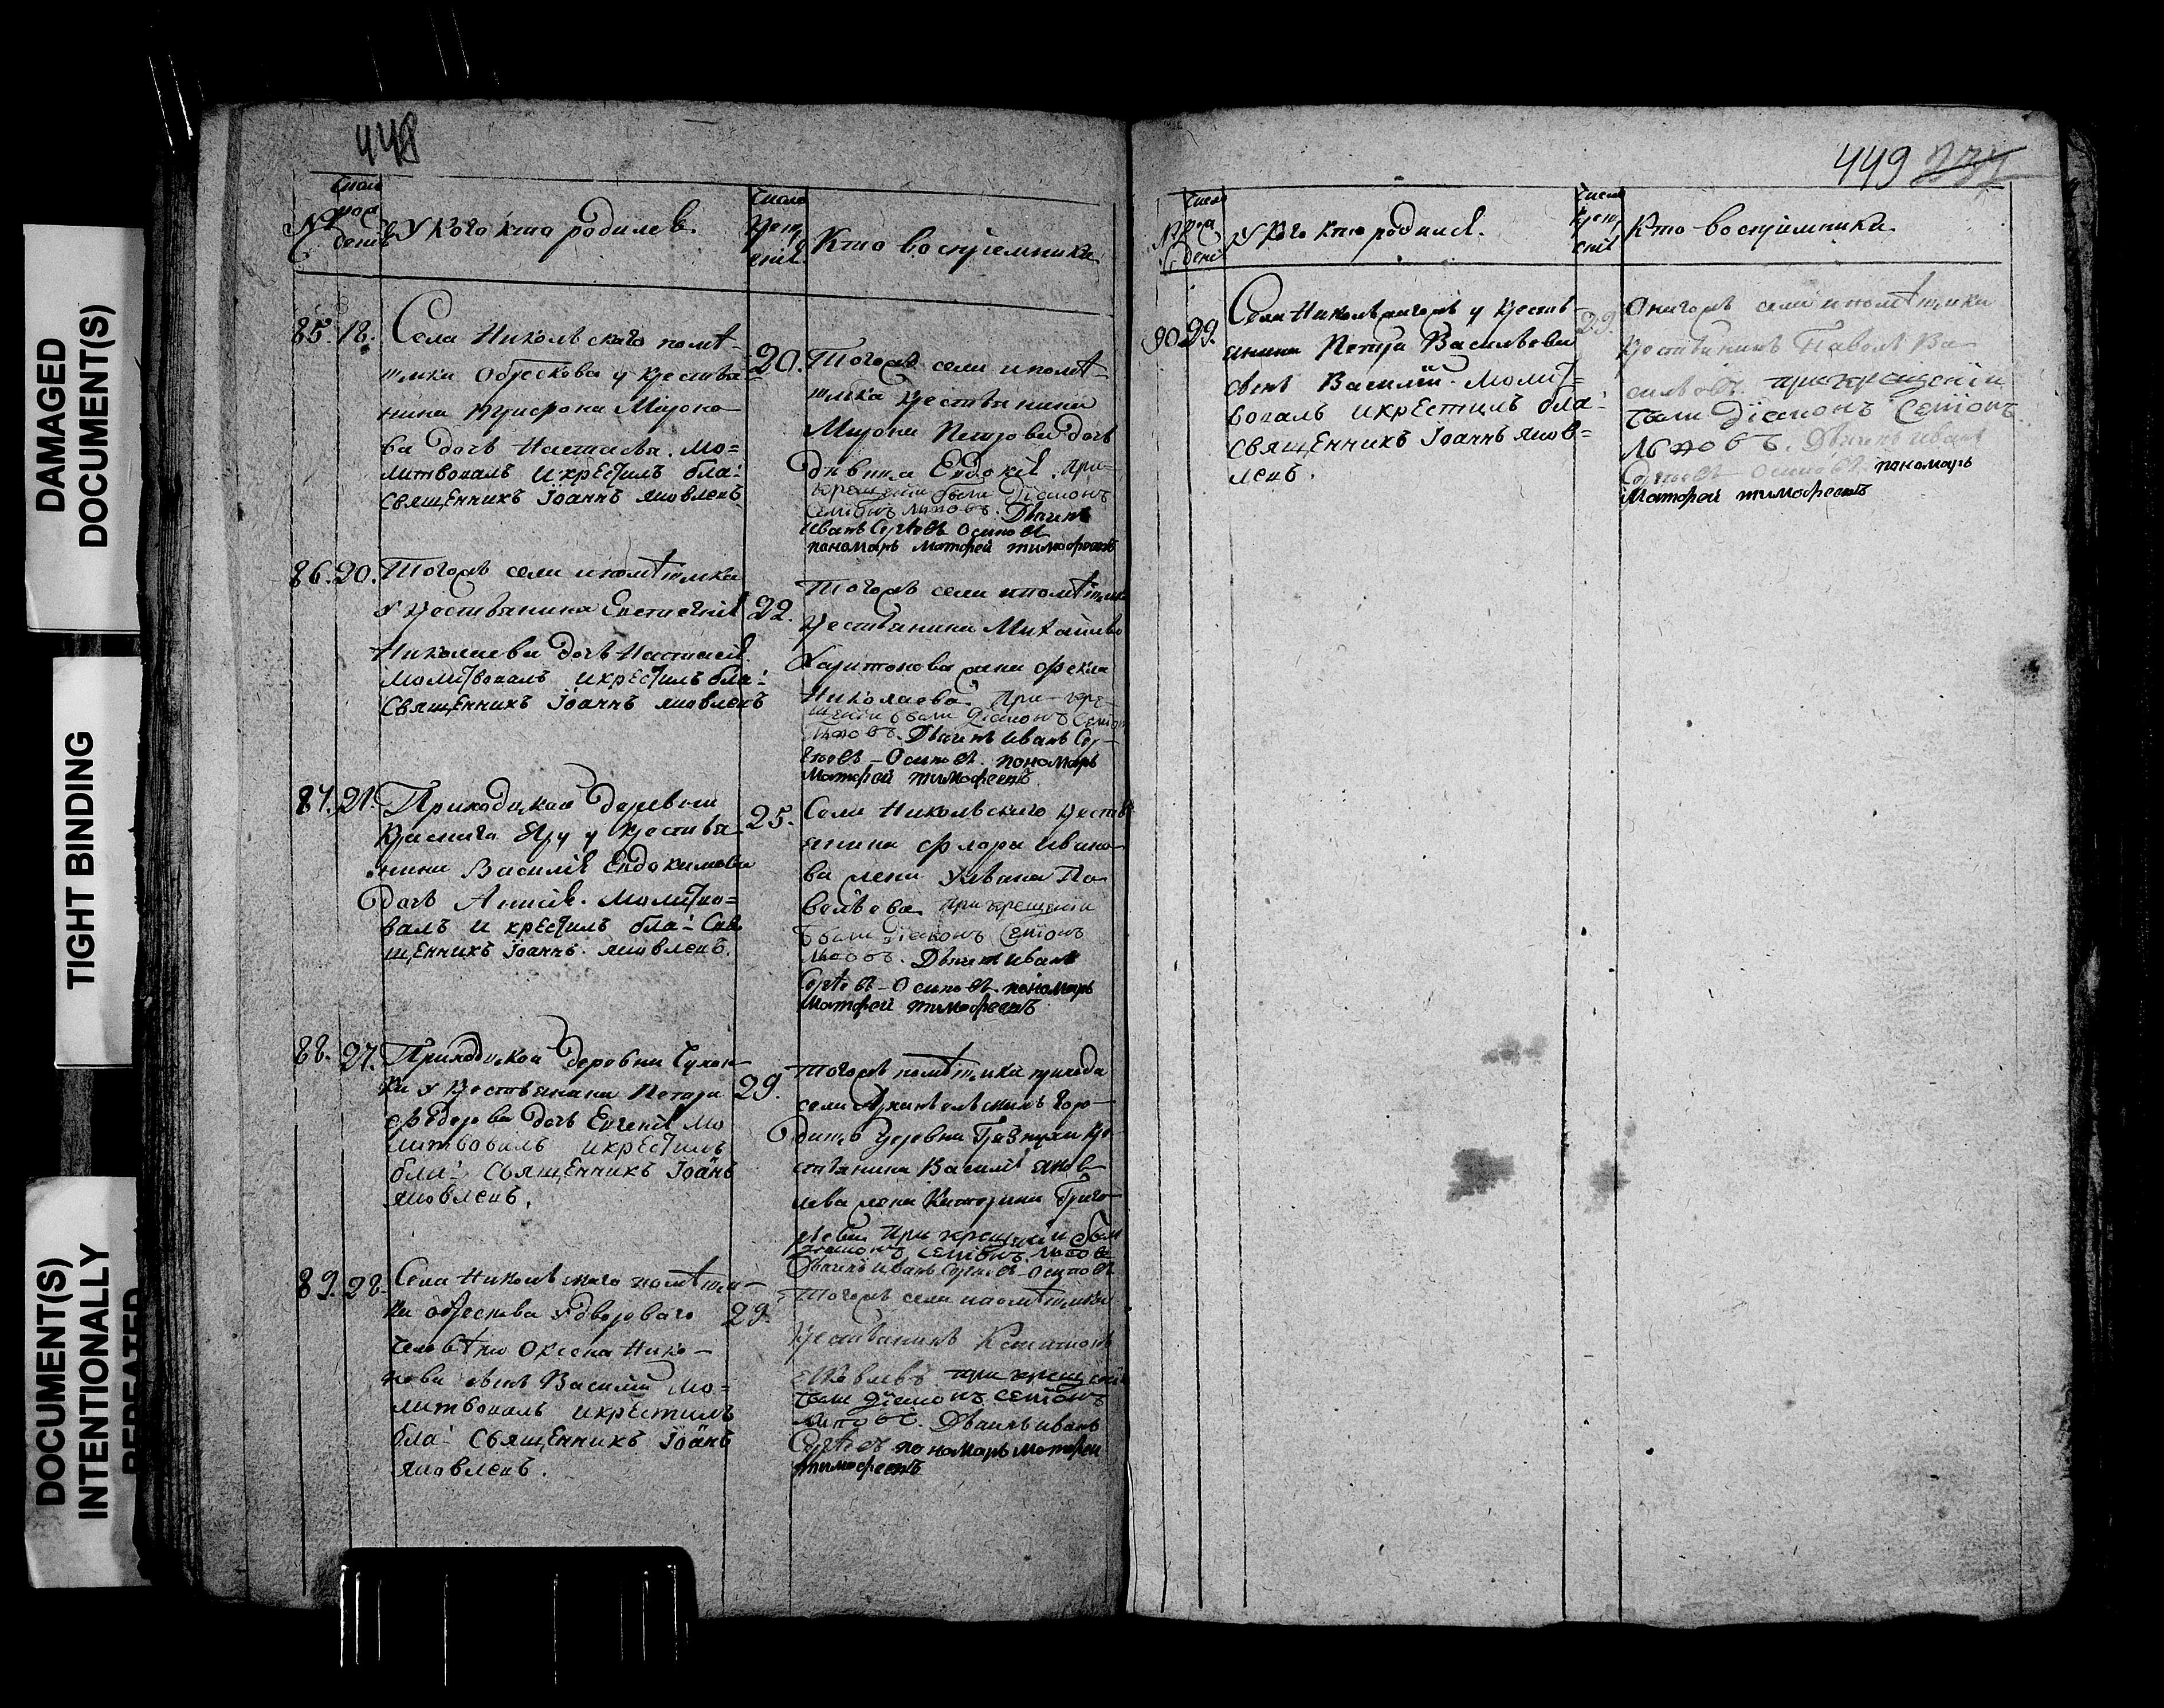 DAMAGED
DOCUMENT(S)
TIGHT BINDING
DOCUMENT(S)
INTENTIONALLY
REPEATED
448
№
Число
рож
денiя
У кого кто родился
Число
крещ
енiя
Кто воспрiемники
85. 18.
Села Никольскаго помѣ-
щика Обрѣскова у крестья-
нина Трифона Мироно-
ва дочь Настасья. Мо=
литвовалъ и крестилъ бла:
священникъ Iоаннъ яковлевъ
20.
Тогожъ села и помѣ-
щика крестьянина
Мирона Петрова дочь
дѣвица Евдокiя. При-
крещенiи были Дiаконъ
Семiонъ Львовъ. Дьячекъ
Иванъ Сергѣевъ Осиповъ
пономарь матфей тимофеевъ
86. 20.
Тогожъ села и помѣщика
у крестьянина Евстигнея
Николаева дочь Настасья
молитвовалъ и крестилъ бла:
священникъ Iоаннъ яковлевъ
22.
Тогожъ села и помѣщика
крестьянина Михайлы
Харитонова жена Фекла
Николаева. При кре-
щенiи были дiаконъ Семiонъ
Львовъ. Дьячекъ Иванъ Сер-
гѣевъ - Осиповъ. пономарь
матфей тимофеевъ
87. 21.
Приходцкой деревни
Краснаго Яру у крестья-
нина Василiя Евдокимова
дочь Анисiя. молитво=
валъ и крестилъ бла: Свя
щенникъ Iоаннъ. яковлевъ.
25.
Села Никольскаго кресть
янина Флора Ивано-
ва жена Ульяна Па-
вельева при крещенiи
были дiаконъ Семiонъ
Львовъ. Дьячекъ Иванъ
Сергѣевъ - Осиповъ пономарь
матфей тимофеевъ
88. 27.
Приходцкой деревни
ки у крестьянина Петра
Федорова дочь Евгенiя Мо
литвовалъ и крестилъ
бла: Священникъ Iоаннъ
яковлевъ.
29.
Тогожъ помѣщика прихода
села
деревни Грязнухи кре-
стьянина Василiя яков-
лева жена Катерина Григо-
рьева при крещенiи были
дiаконъ Семiонъ Львовъ
Дьячекъ Иванъ Сергѣевъ - Осиповъ
89. 28.
Села Никольскаго помѣщи-
ка обрескова у двороваго
человѣка Оксена Нико-
нова сынъ Василiй мо=
литвовалъ и крестилъ
бла: Священникъ Iоаннъ
яковлевъ.
29.
Тогожъ села и помѣщика
крестьянинъ
яковлевъ при крещенiи
были дiаконъ семiонъ
Львовъ. Дьячекъ иванъ
Сергѣевъ пономарь матфеи
тимофеевъ
449 234
№
Число
рож
денiя
У кого кто родился.
Число
крещ
енiя
Кто воспрiемники
90. 29.
Села Никольскагожъ у кресть-
янина Петра Васильева
сынъ Василiй. Молит=
вовалъ и крестилъ бла:
священникъ Iоаннъ яков=
левъ.
29.
Оногожъ села и помѣщика
крестьянинъ Павелъ Ва-
сильевъ при крещенiи
были дiаконъ Семiонъ
Львовъ. Дьячекъ Иванъ
Сергѣевъ Осиповъ. пономарь
Матфей тимофеевъ